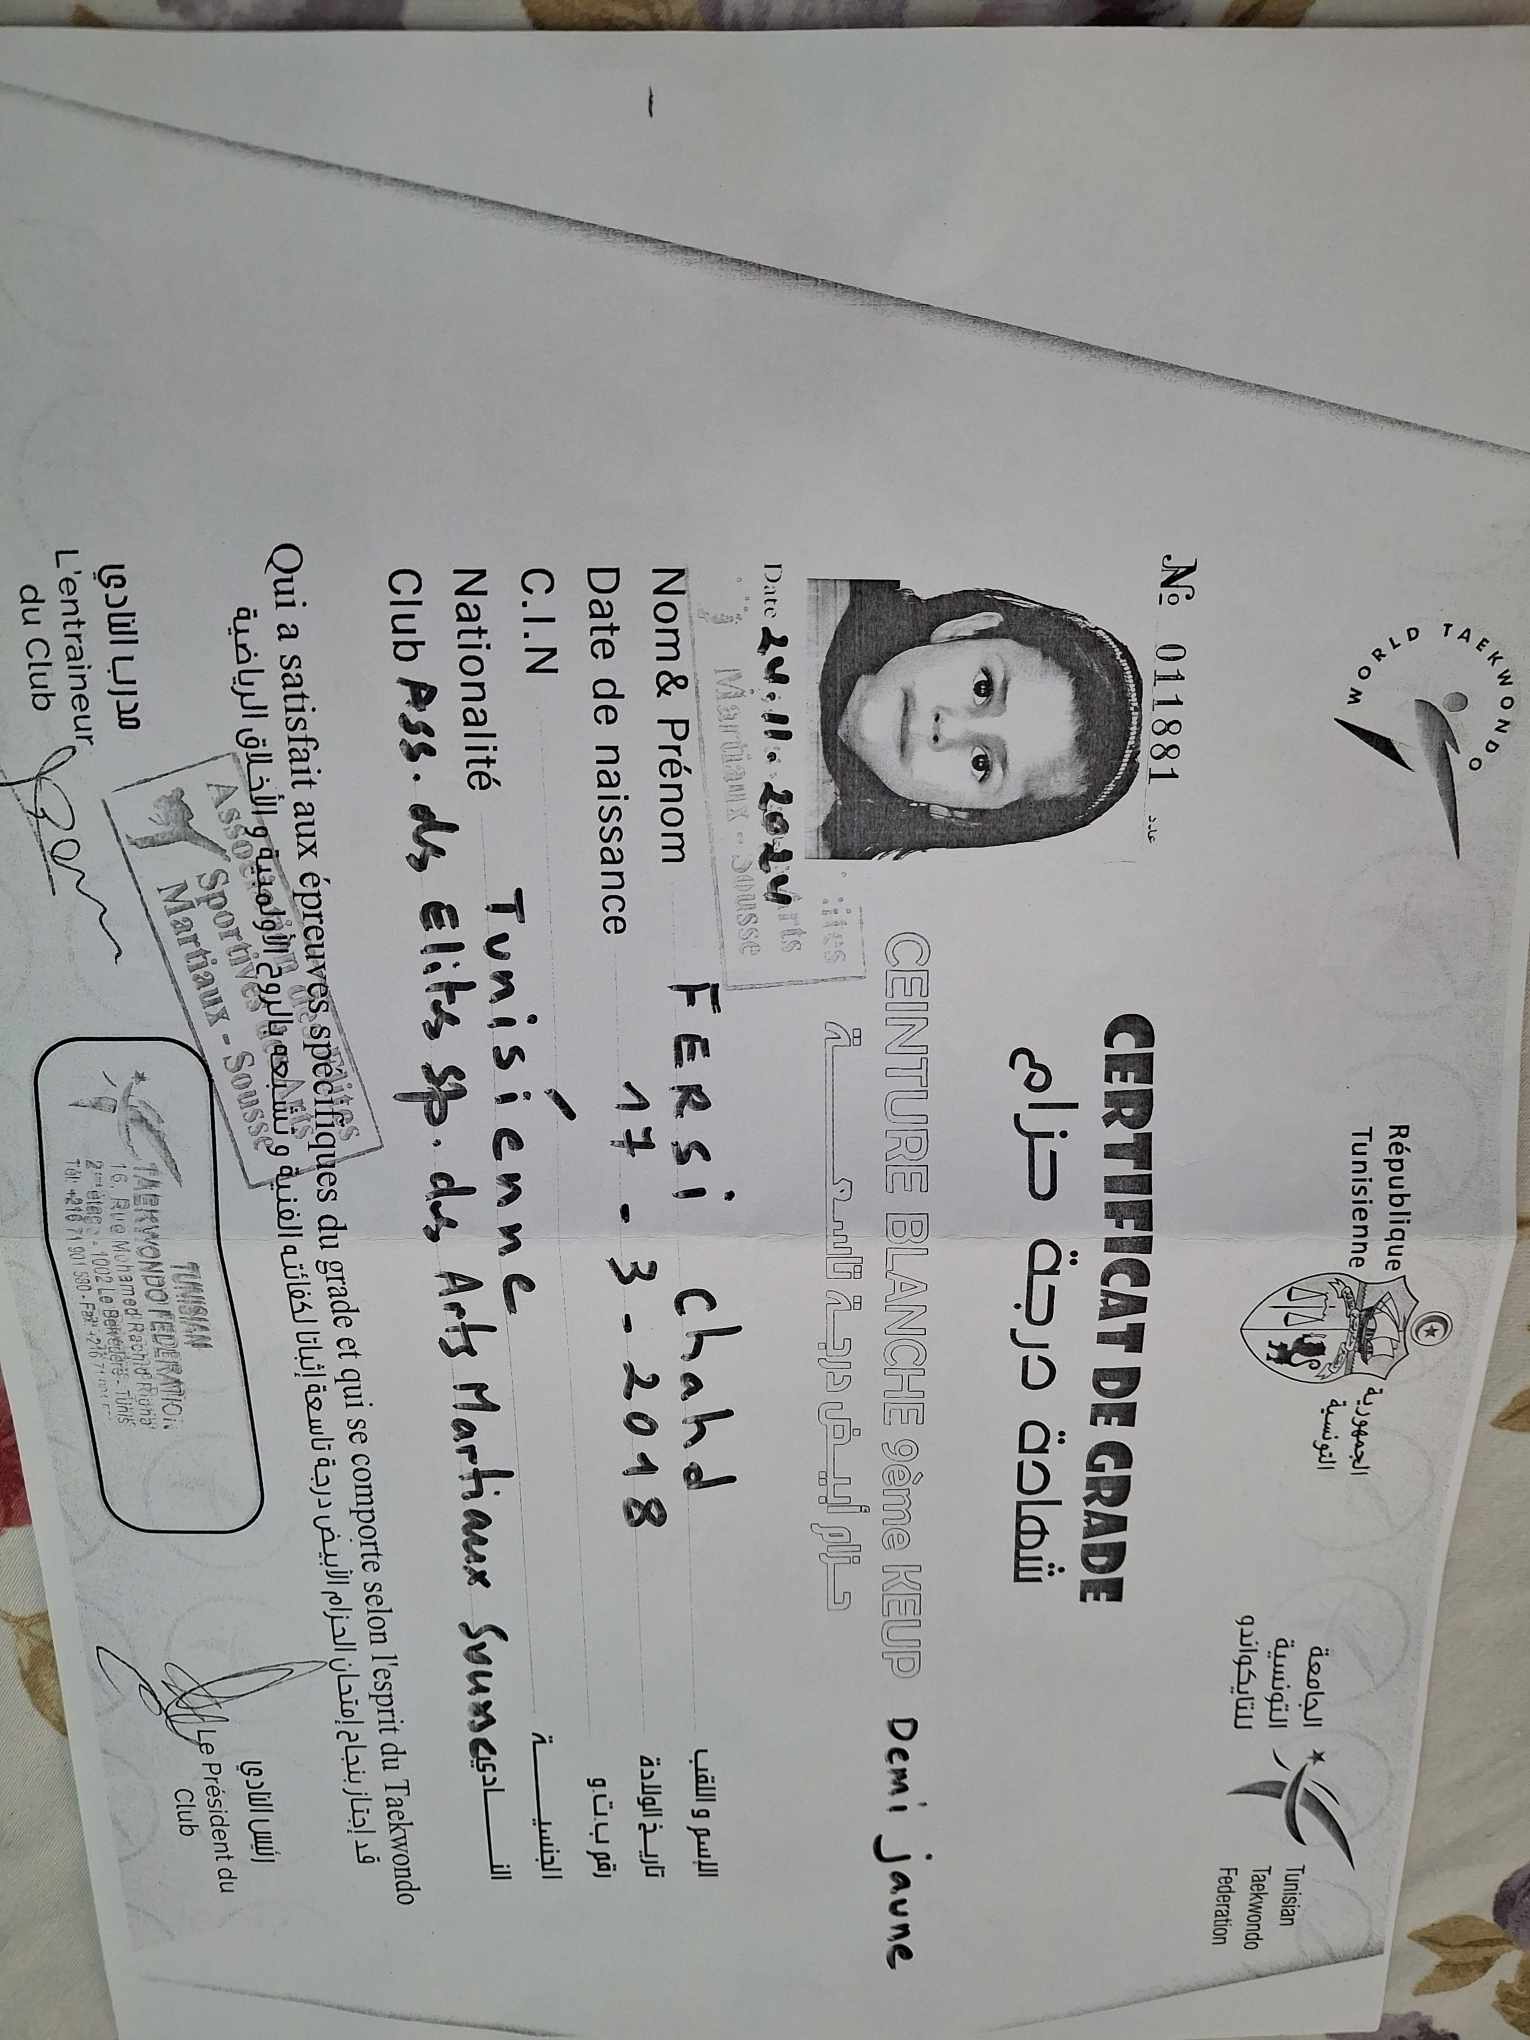 WORLD TAEKWONDO
République
Tunisienne
الجمهورية
التونسية
الجامعة
التونسية
للتايكواندو
Tunisian
Taekwondo
Federation
№ 011881 عدد
CERTIFICAT DE GRADE
شهادة درجة حزام
CEINTURE BLANCHE 9ème KEUP Demi jaune
حزام أبيض درجة تاسعة
Date 24.11.2024
Arts
Martiaux - Sousse
Nom& Prénom FERSi Chahd الإسم و اللقب
Date de naissance 17-3-2018 تاريخ الولادة
C.I.N رقم ب.ت.و
Nationalité Tunisienne الجنسية
Club Ass. ds Elites sp. des Arts Martiaux Sousse النادي
Qui a satisfait aux épreuves spécifiques du grade et qui se comporte selon l'esprit du Taekwondo
قد إجتاز بنجاح إمتحان الحزام الأبيض درجة تاسعة إثباتا لكفائته الفنية و تشبعه بالروح الأولمبية و الأخلاق الرياضية
Association des Elites
Sportives des Arts
Martiaux - Sousse
مدرب النادي
L'entraineur
du Club
TUNISIAN
TAEKWONDO FEDERATION
16, Rue Mohamed Rachid Ridha
2ème étage - 1002 Le Belvédère - Tunis
Tél: +216 71 901 580 - Fax: +216 71
رئيس النادي
Le Président du
Club